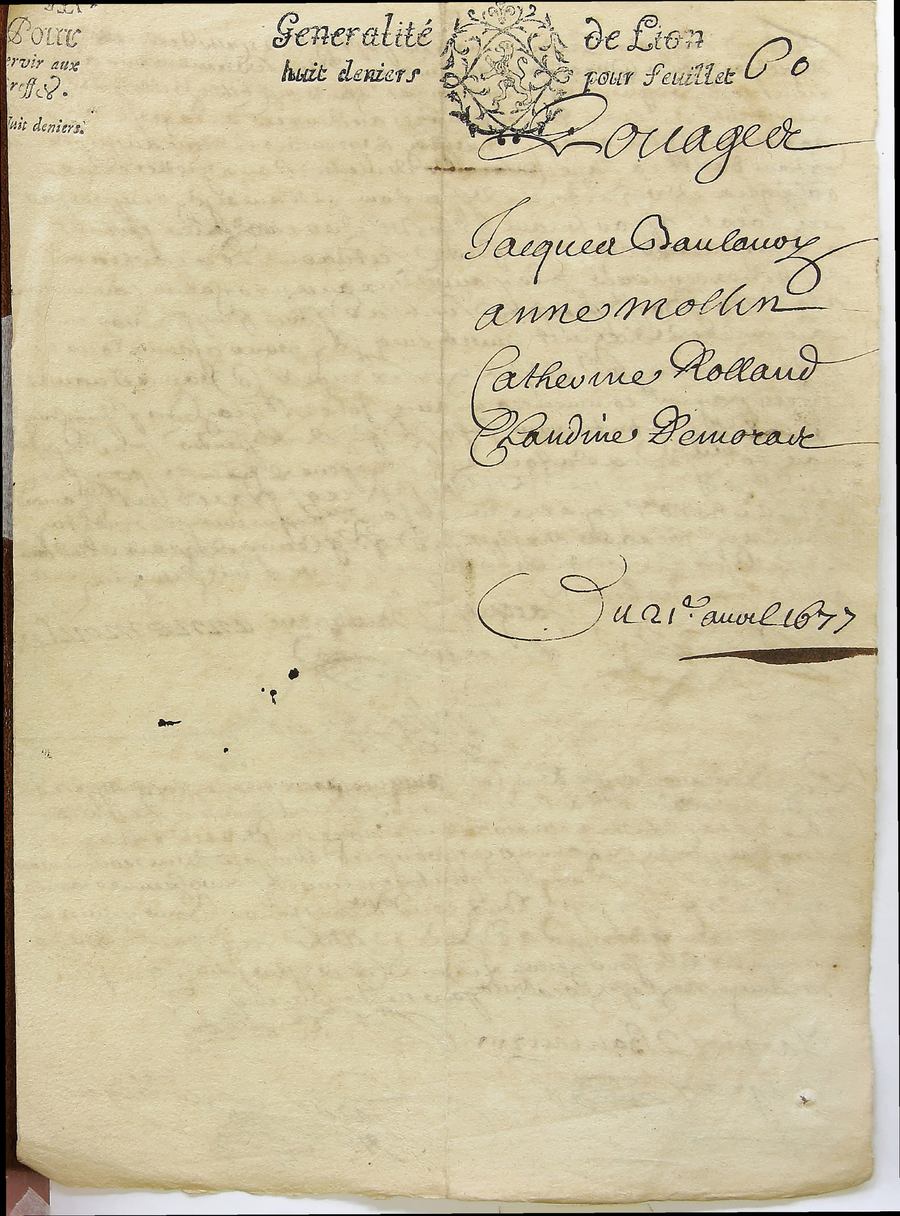 Pour
ervir aux
reffes.
uit deniers.
Generalité de Lion
huit deniers pour feuillet
60
Louage de
Jacques Baulavoy
anne mollin
Catherine Rolland
Claudine Demorade
Du 21e. avril 1677